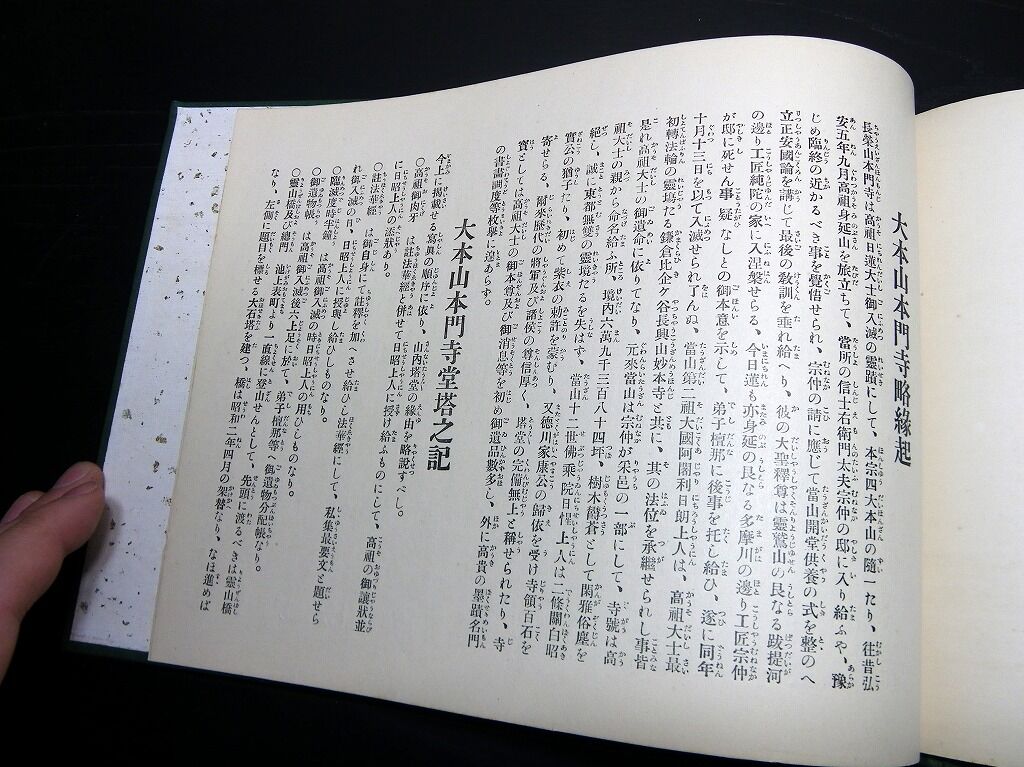 大本山本門寺略緣起
長榮山本門寺は高祖日蓮大士御入滅の靈蹟にして、本宗四大本山の隨一たり、往昔弘
安五年九月高祖身延山を旅立ちて、當所の信士右衛門太夫宗仲の邸に入り給ふや、豫
じめ臨終の近かるべき事を覺悟せられ、宗仲の請に應じて當山開堂供養の式を整のへ
立正安國論を講じて最後の敎訓を垂れ給へり、彼の大聖釋尊は靈鷲山の艮なる跋提河
の邊り工匠純陀の家に入涅槃せらる、今日蓮も亦身延の艮なる多摩川の邊り工匠宗仲
が邸に死せん事疑なしとの御本意を示して、弟子檀那に後事を托し給ひ、遂に同年
十月十三日を以て入滅せられ了んぬ、當山第二祖大國阿闍利日朗上人は、高祖大士最
初轉法輪の靈塲たる鎌倉比企ケ谷長興山妙本寺と共に、其の法位を承繼せられし事皆
是れ高祖大士の御遺命に依りてなり、元來當山は宗仲が采邑の一部にして、寺號は高
祖大士の親から命名給ふ所、境内六萬九千三百八十四坪、樹木欝蒼として閑雅俗塵を
絕し、誠に東都無雙の靈境たるを失はず、當山十二世佛乘院日惺上人は二條關白昭
實公の猶子たり、初めて紫衣の勅許を蒙むり、又德川家康公の歸依を受け寺領百石を
寄せらる、爾來歷代の將軍及び諸侯の尊信厚く、塔堂の完備無上と稱せられたり、寺
寶としては高祖大士の御本尊及び御消息等を初め御遺品數多し、外に高貴の墨蹟名門
の書畵調度等枚擧に遑あらず。
大本山本門寺堂塔之記
今上に揭載せる寫眞の順序に依り、山內塔堂の緣由を略說すべし。
○高祖御肉牙　は註法華經と併せて日昭上人に授け給ふものにして、高祖の御讓狀並
に日昭上人の添狀あり。
○註法華經　は御自身にて註釋を加へさせ給ひし法華經にして、私集最要文と題せら
れ御入滅の日、日昭上人に授與し給ひしものなり。
○臨滅度時半鐘　は高祖御入滅の時日昭上人の用ひしものなり。
○御遺物帳　は高祖御入滅後六上足に於て、弟子檀那等へ御遺物分配帳なり。
○靈山橋及び總門　池上表町より一直線に登山せんとして、先頭に渡るべきは靈山橋
なり、左側に題目を標せる大石塔を建つ、橋は昭和二年四月の架替なり、なほ進めば